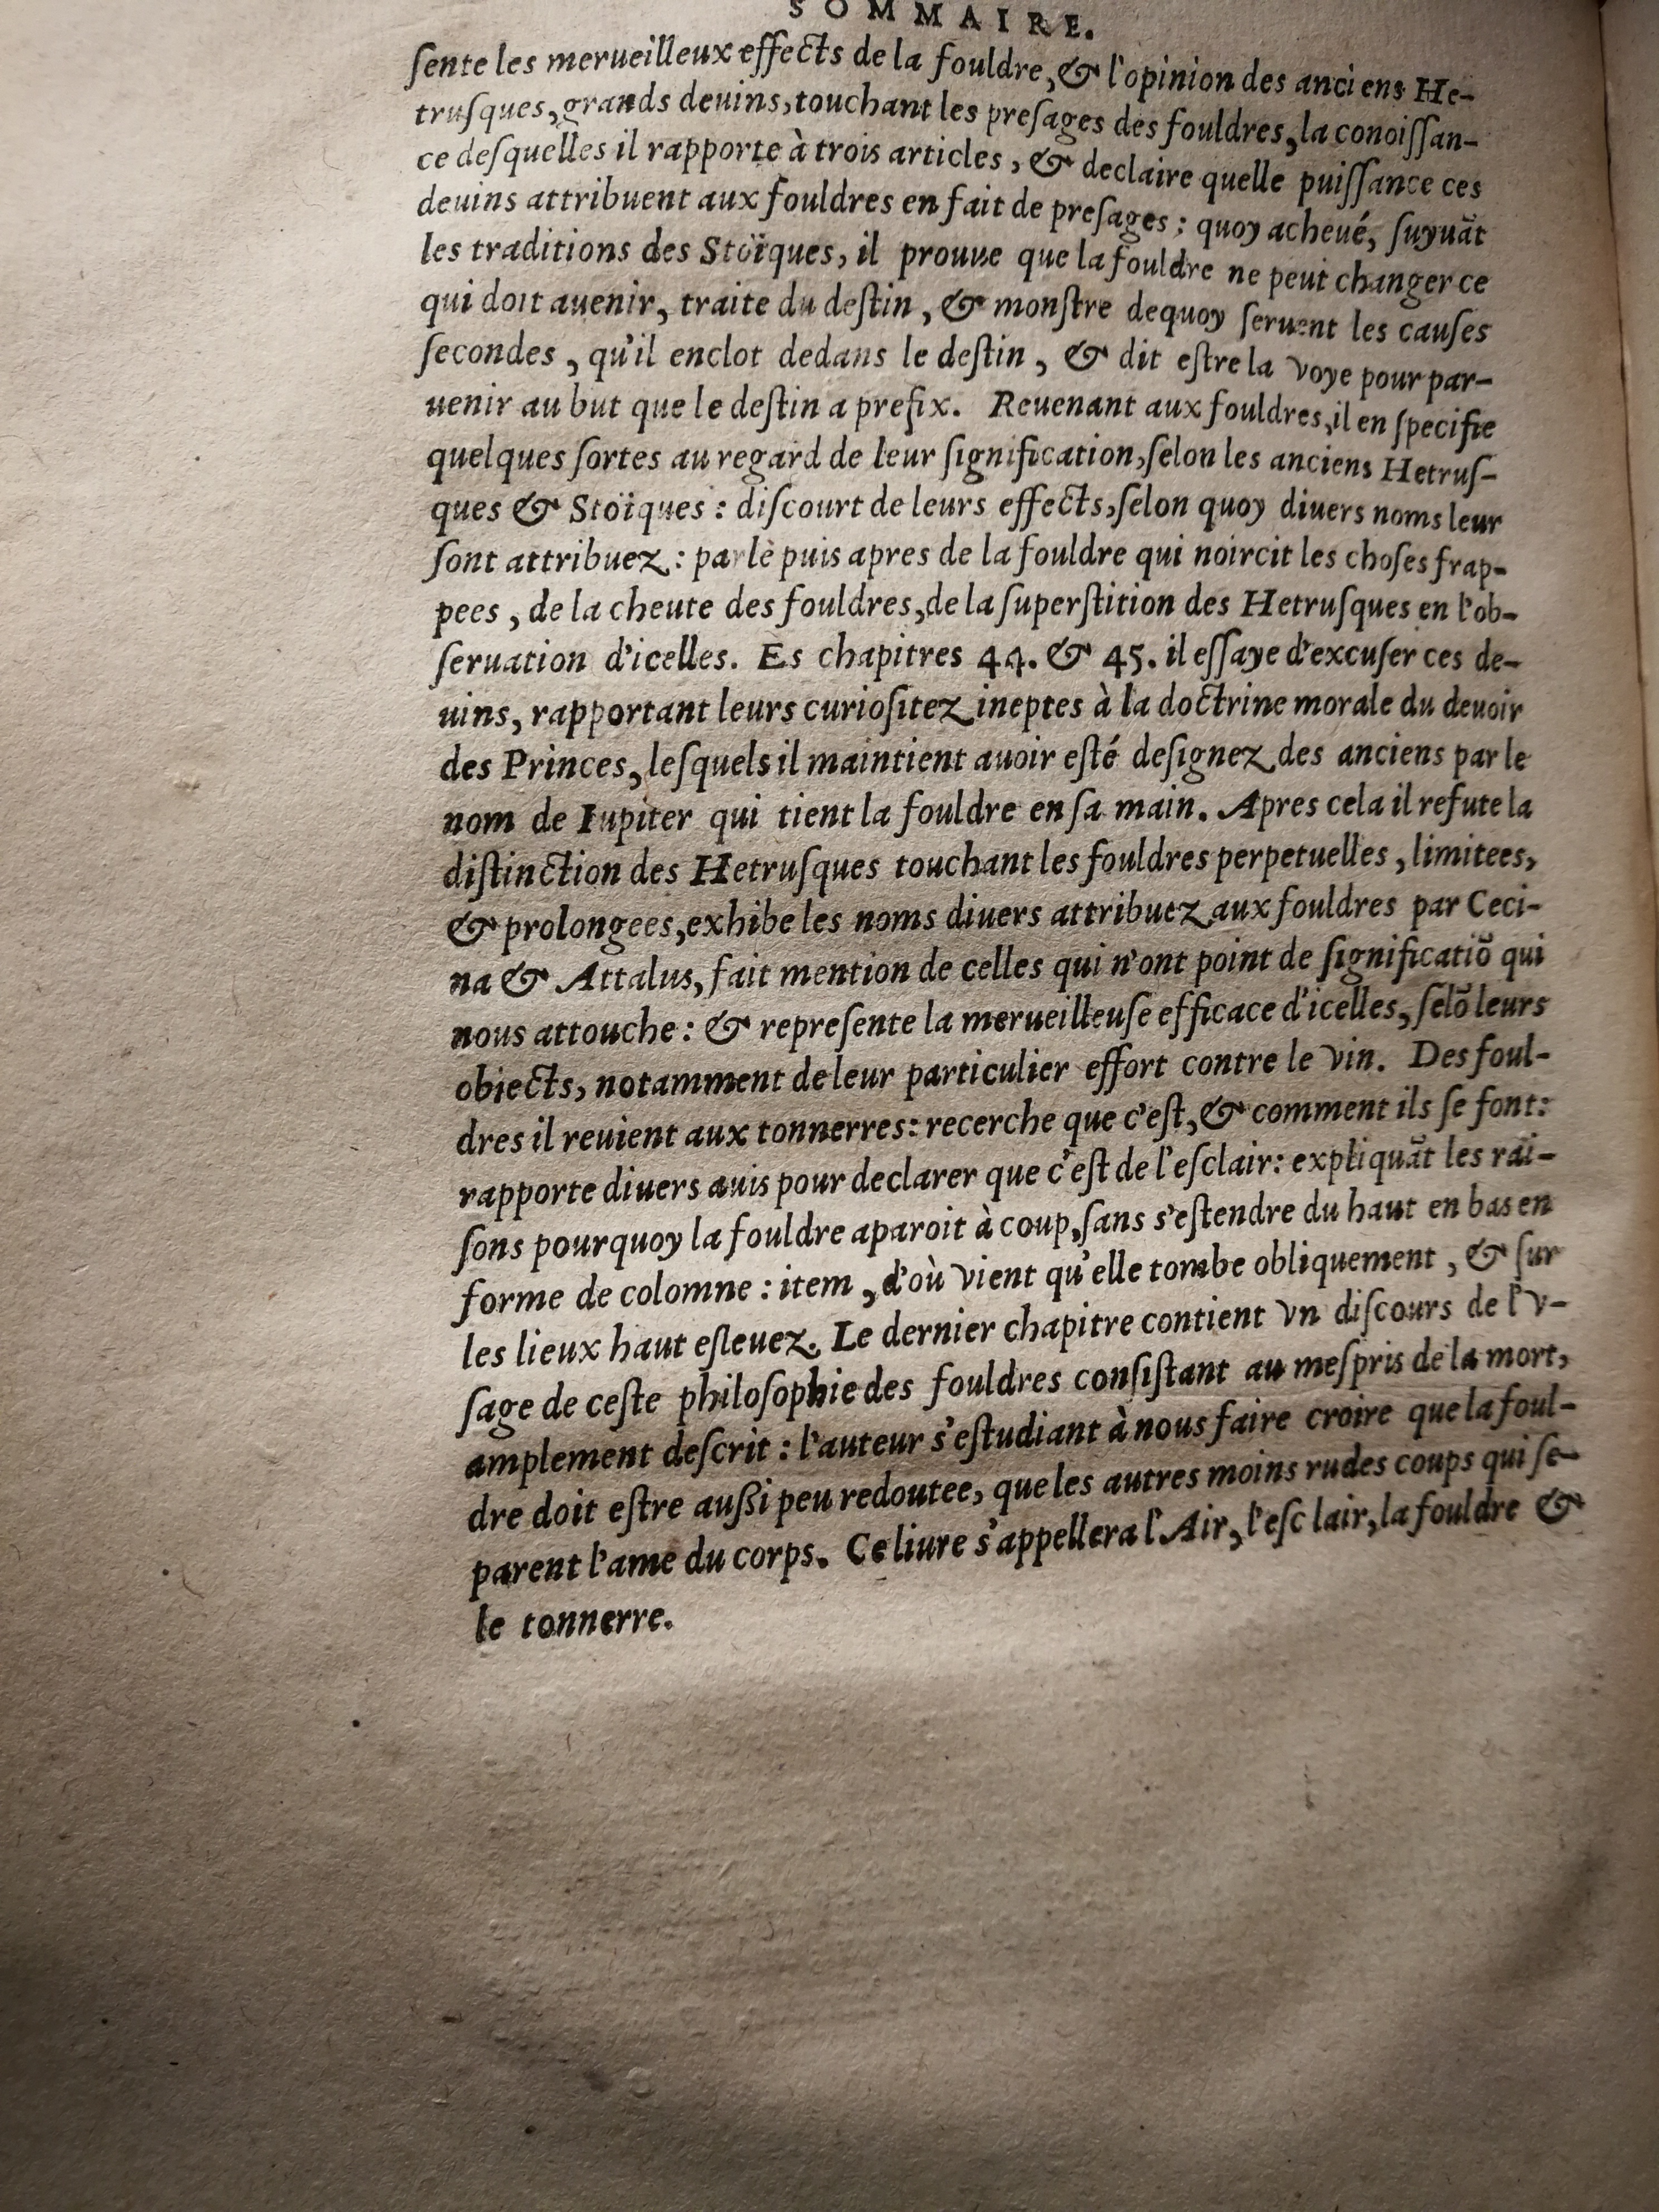 SOMMAIRE.
ſente les merueilleux effects de la fouldre, & l'opinion des anciens He-
truſques, grands deuins, touchant les preſages des fouldres, la conoiſſan-
ce deſquelles il rapporte à trois articles, & declaire quelle puiſſance ces
deuins attribuent aux fouldres en fait de preſages : quoy acheué, ſuyuãt
les traditions des Stoïques, il prouue que la fouldre ne peut changer ce
qui doit auenir, traite du deſtin, & monſtre dequoy ſeruent les cauſes
ſecondes, qu'il enclot dedans le deſtin, & dit eſtre la voye pour par-
uenir au but que le deſtin a prefix. Reuenant aux fouldres, il en ſpecifie
quelques ſortes au regard de leur ſignification, ſelon les anciens Hetruſ-
ques & Stoïques : diſcourt de leurs effects, ſelon quoy diuers noms leur
ſont attribuez : parle puis apres de la fouldre qui noircit les choſes frap-
pees, de la cheute des fouldres, de la ſuperſtition des Hetruſques en l'ob-
ſeruation d'icelles. Es chapitres 44. & 45. il eſſaye d'excuſer ces de-
uins, rapportant leurs curioſitez ineptes à la doctrine morale du deuoir
des Princes, leſquels il maintient auoir eſté deſignez des anciens par le
nom de Iupiter qui tient la fouldre en ſa main. Apres cela il refute la
diſtinction des Hetruſques touchant les fouldres perpetuelles, limitees,
& prolongees, exhibe les noms diuers attribuez aux fouldres par Ceci-
na & Attalus, fait mention de celles qui n'ont point de ſignificatiõ qui
nous attouche : & repreſente la merueilleuſe efficace d'icelles, ſelõ leurs
obiects, notamment de leur particulier effort contre le vin. Des foul-
dres il reuient aux tonnerres : recerche que c'eſt, & comment ils ſe font :
rapporte diuers auis pour declarer que c'eſt de l'eſclair : expliquãt les rai-
ſons pourquoy la fouldre aparoit à coup, ſans s'eſtendre du haut en bas en
forme de colomne : item, d'où vient qu'elle tombe obliquement, & ſur
les lieux haut eſleuez. Le dernier chapitre contient vn diſcours de l'v-
ſage de ceſte philoſophie des fouldres conſiſtant au meſpris de la mort,
amplement deſcrit : l'auteur s'eſtudiant à nous faire croire que la foul-
dre doit eſtre auſſi peu redoutee, que les autres moins rudes coups qui ſe-
parent l'ame du corps. Ce liure s'appellera l'Air, l'eſclair, la fouldre &
le tonnerre.